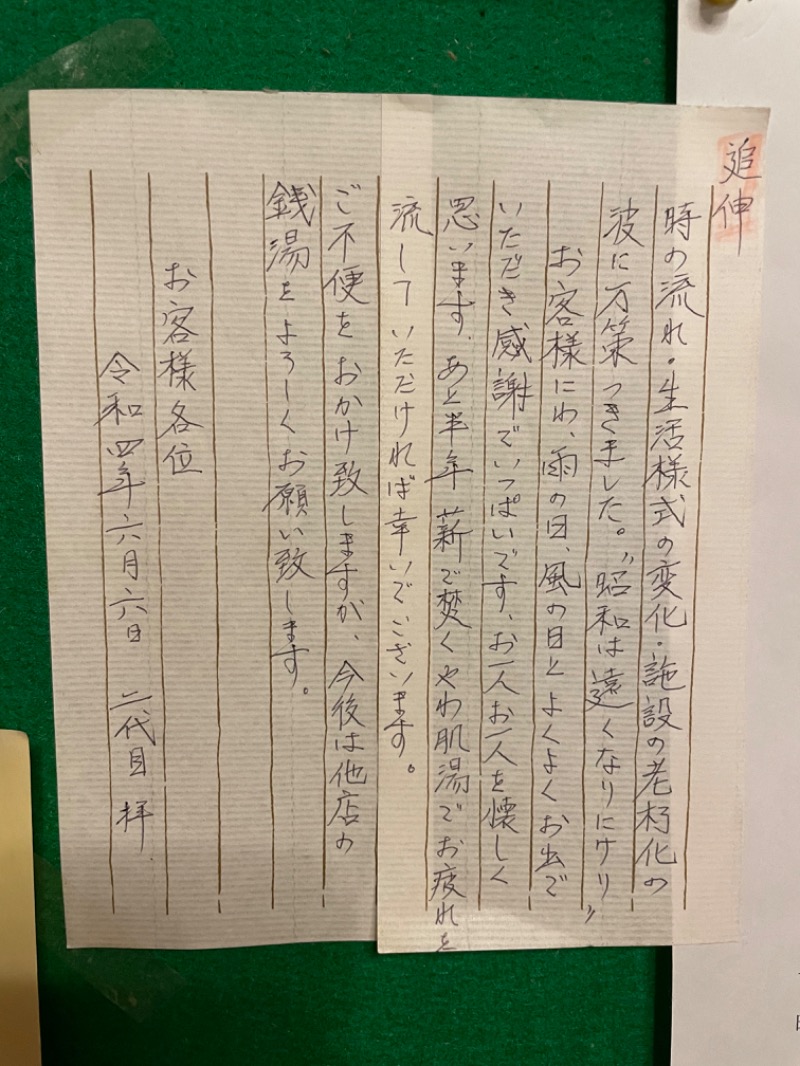 追伸
時の流れ・生活様式の変化・施設の老朽化の
波に万策つきました。〝昭和は遠くなりにけり〟
お客様にわ、雨の日、風の日とよくよくお出で
いただき感謝でいっぱいです、お一人お一人を懐しく
思います、あと半年薪で焚くやわ肌湯でお疲れを
流していただければ幸いでございます。
ご不便をおかけ致しますが、今後は他店の
銭湯をよろしくお願い致します。
お客様各位
令和四年六月六日 二代目 拝